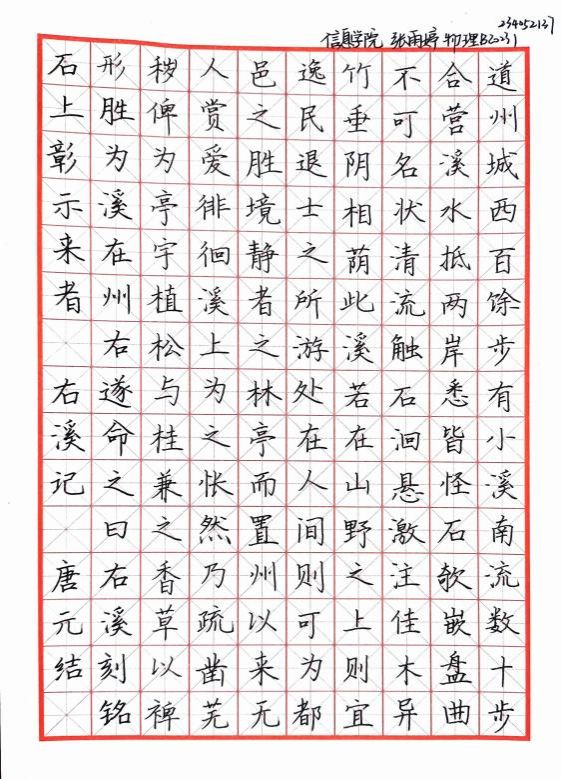 信息学院 张雨婷 物理
道州城西百馀步有小溪南流数十步
合营溪水抵两岸悉皆怪石欹嵌盘曲
不可名状清流触石洄悬激注佳木异
竹垂阴相荫此溪若在山野之上则宜
逸民退士之所游处在人间则可为都
邑之胜境静者之林亭而置州以来无
人赏爱徘徊溪上为之怅然乃疏凿芜
秽俾为亭宇植松与桂兼之香草以裨
形胜为溪在州右遂命之曰右溪刻铭
石上彰示来者 右溪记 唐元结